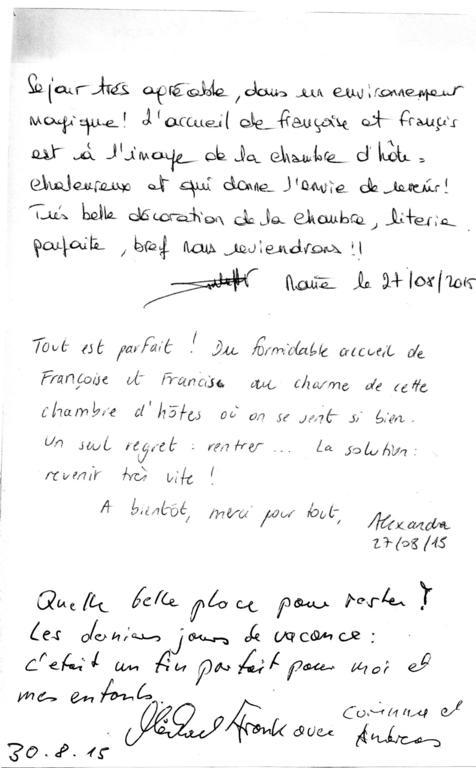 Séjour très apréable, dans un environnement
magique! L'accueil de françoise et françis
est à l'image de la chambre d'hôte =
chaleureux et qui donne l'envie de revenir!
Très belle décoration de la chambre, literie
parfaite, bref nous reviendrons !!
le 27/08/2015
Tout est parfait ! Du formidable accueil de
Françoise et Francise au charme de cette
chambre d'hôtes où on se sent si bien.
Un seul regret : rentrer ... La solution :
revenir très vite !
A bientôt, merci pour tout,
Alexandra
27/08/15
Quelle belle place pour rester !
Les derniers jours de vacance :
c'était un fin parfait pour moi et
mes enfants.
Michael Frank avec Corinna et
Andreas
30.8.15